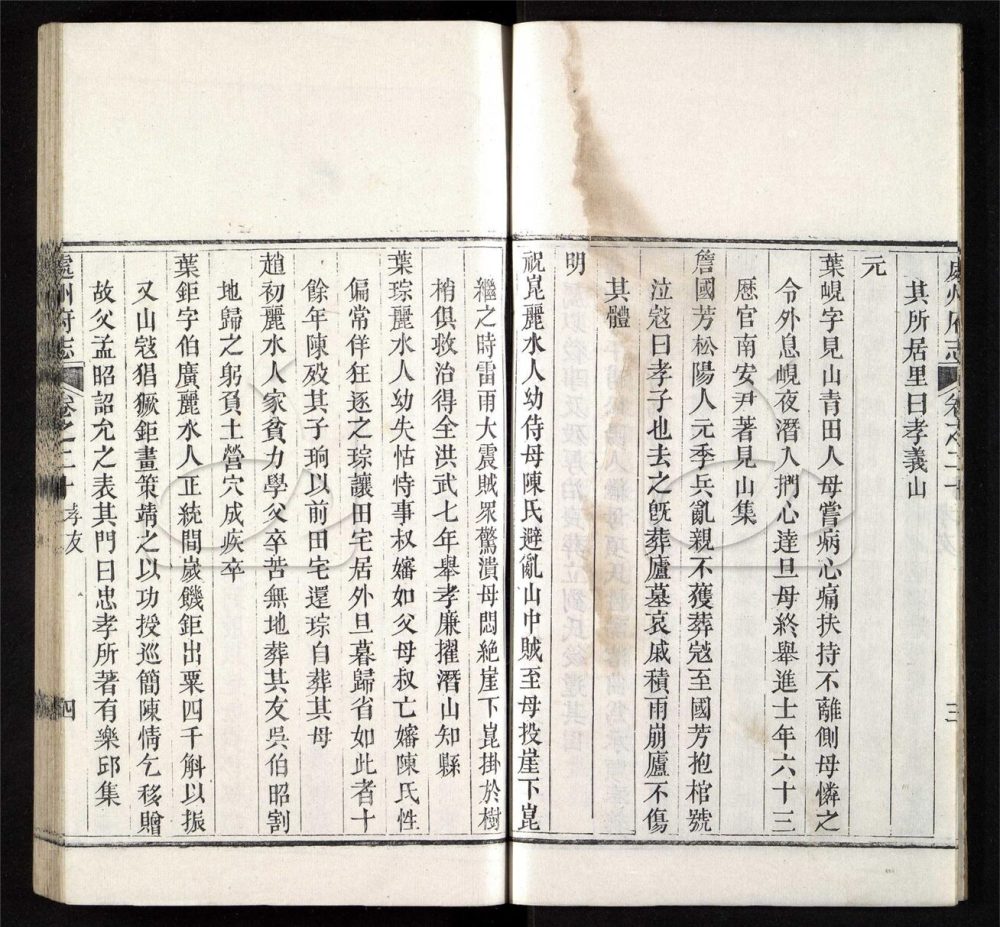 處州府志
卷之二十
三
其所居里曰孝義山
元
葉峴字見山青田人母嘗病心痛扶持不離側母憐之
令外息峴夜潛入捫心達旦母終舉進士年六十三
歷官南安尹著見山集
詹國芳松陽人元季兵亂親不獲葬寇至國芳抱棺號
泣寇曰孝子也去之旣葬廬墓哀戚積雨崩廬不傷
其體
明
祝崑麗水人幼侍母陳氏避亂山中賊至母投崖下崑
繼之時雷雨大震賊眾驚潰母悶絶崖下崑掛於樹
梢俱救治得全洪武七年舉孝廉擢潛山知縣
葉琮麗水人幼失怙恃事叔嬸如父母叔亡嬸陳氏性
偏常佯狂逐之琮讓田宅居外旦暮歸省如此者十
餘年陳歿其子珦以前田宅還琮自葬其母
趙初麗水人家貧力學父卒苦無地葬其友吳伯昭割
地歸之躬負土營穴成疾卒
葉鉅字伯廣麗水人正統間歲饑鉅出粟四千斛以振
又山寇猖獗鉅畫策靖之以功授巡簡陳情乞移贈
故父孟昭詔允之表其門曰忠孝所著有樂邱集
處州府志
卷之二十 孝友
四